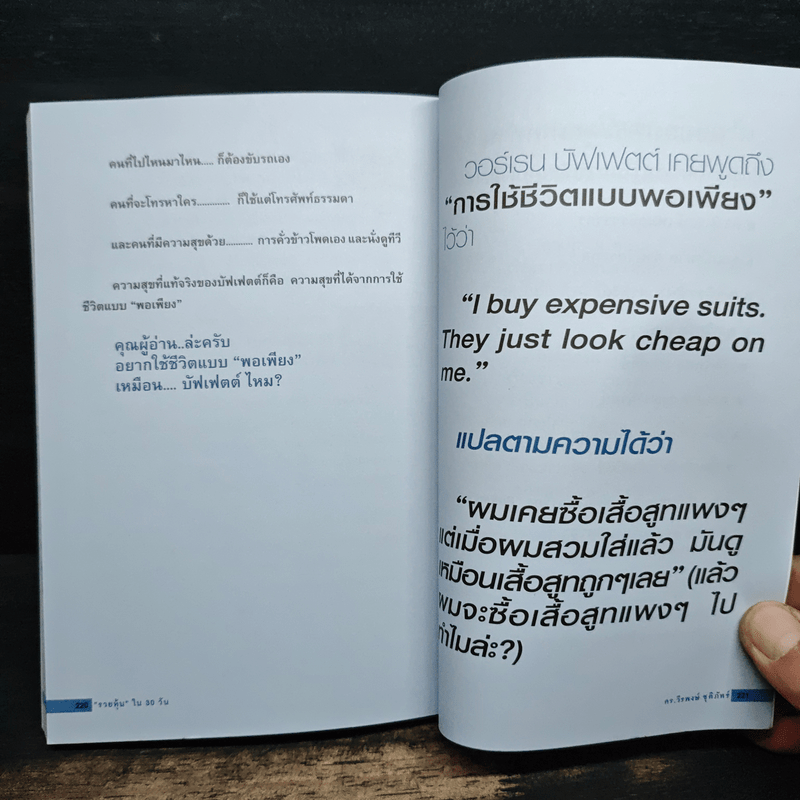 คนที่ไปไหนมาไหน..... ก็ต้องขับรถเอง
คนที่จะโทรหาใคร............ ก็ใช้แต่โทรศัพท์ธรรมดา
และคนที่มีความสุขด้วย........... การคั่วข้าวโพดเอง และนั่งดูทีวี
ความสุขที่แท้จริงของบัฟเฟตต์ก็คือ ความสุขที่ได้จากการใช้
ชีวิตแบบ “พอเพียง”
คุณผู้อ่าน..ล่ะครับ
อยากใช้ชีวิตแบบ “พอเพียง”
เหมือน.... บัฟเฟตต์ ไหม?
220 “รวยหุ้น” ใน 30 วัน
วอร์เรน บัฟเฟตต์ เคยพูดถึง
“การใช้ชีวิตแบบพอเพียง”
ไว้ว่า
“I buy expensive suits.
They just look cheap on
me.”
แปลตามความได้ว่า
“ผมเคยซื้อเสื้อสูทแพงๆ
แต่เมื่อผมสวมใส่แล้ว มันดู
เหมือนเสื้อสูทถูกๆเลย” (แล้ว
ผมจะซื้อเสื้อสูทแพงๆ ไป
ทำไมล่ะ?)
ดร.วีรพงษ์ ชุติภัทร์ 221